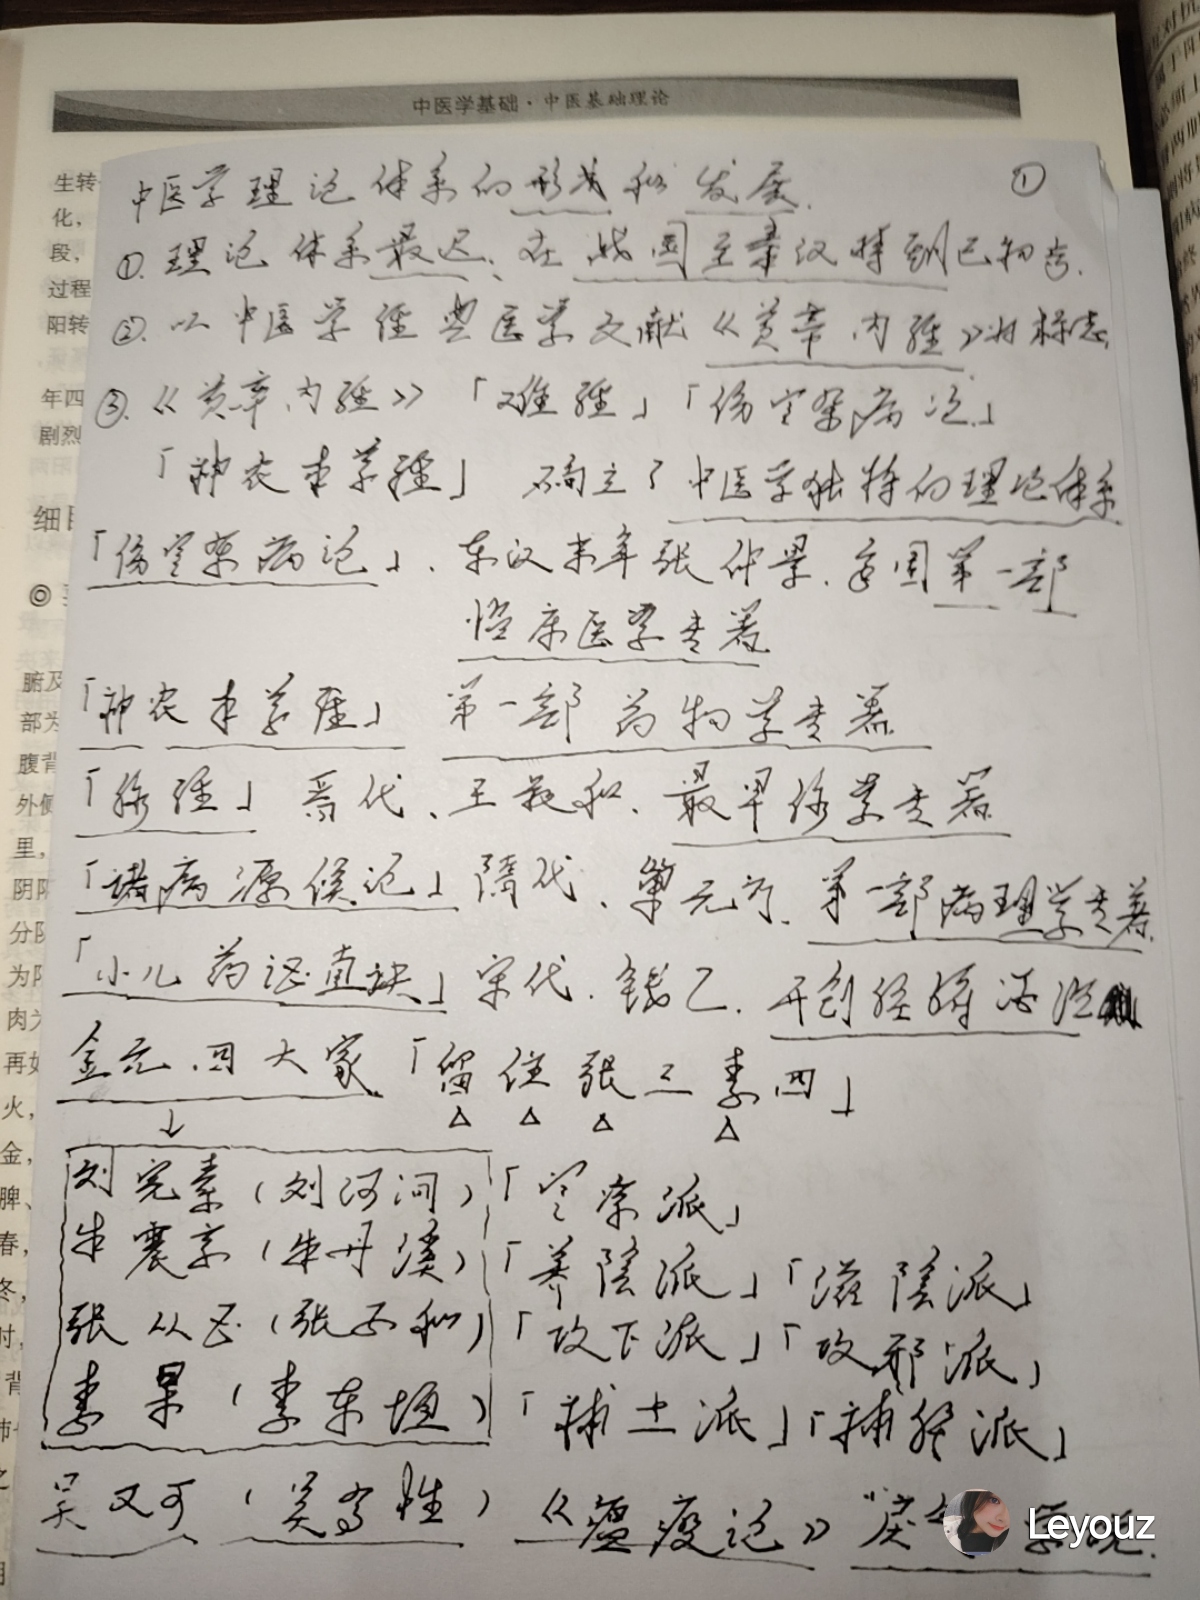 中医学基础·中医基础理论
生转
化，
段，
过程
阳转
年四
剧烈
细目
腑及
部为
腹背
外侧
里，
阴阳
分阴
为阳
肉为
再如
火，
金，
脾、
春，
冬，
时，
背
①
中医学理论体系的形成和发展.
①.理论体系最迟、在战国至秦汉时期已初步.
②.以中医学经典医学文献《黄帝内经》为标志
③.《黄帝内经》「难经」「伤寒杂病论」
「神农本草经」 确立了中医学独特的理论体系
「伤寒杂病论」.东汉末年张仲景.我国第一部
临床医学专著
「神农本草经」 第一部药物学专著.
「脉经」晋代、王叔和.最早脉学专著.
「诸病源候论」隋代、巢元方.第一部病理学专著.
「小儿药证直诀」宋代.钱乙.开创脏腑证治
金元.四大家「留住张三素四」
↓
刘完素（刘河间）「寒凉派」
朱震亨（朱丹溪）「养陰派」「滋陰派」
张从正（张子和）「攻下派」「攻邪派」
李杲（李东垣）「補土派」「補脾派」
吴又可（吴有性）《瘟疫论》"戾气 学说.
Leyouz